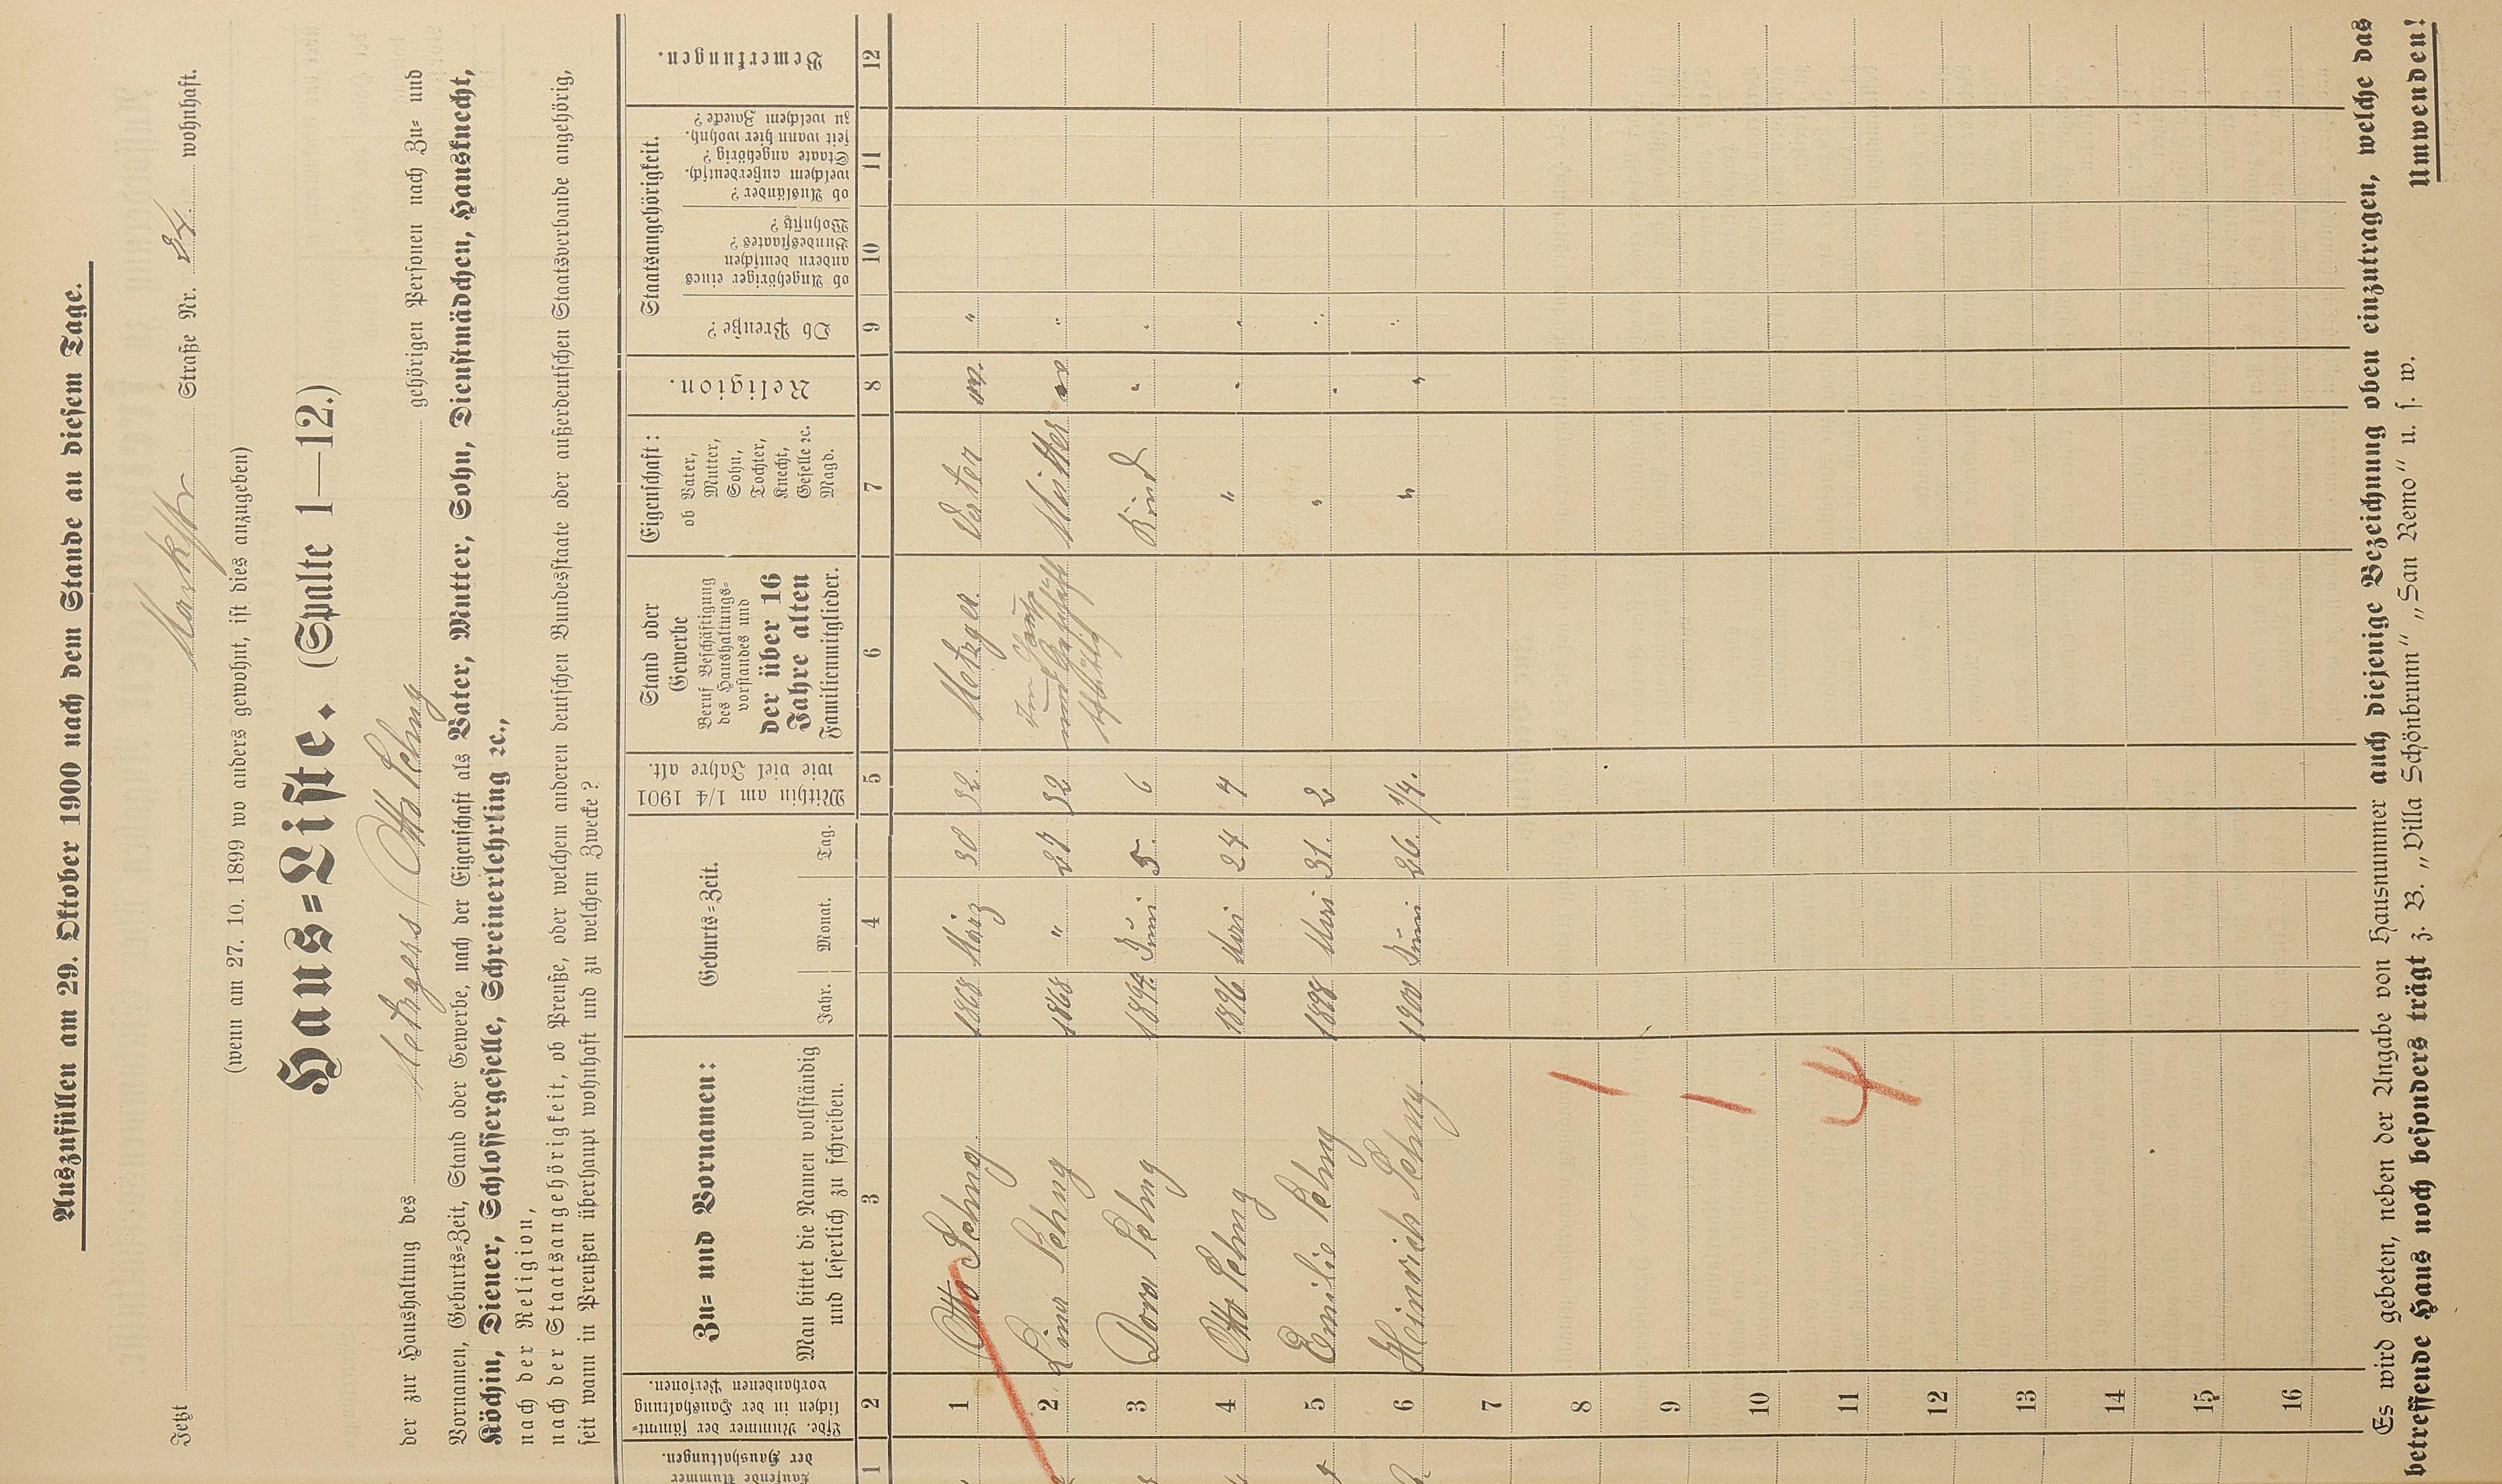 Auszufüllen am 29. Oktober 1900 nach dem Stande an diesem Tage.
Jetzt Marktstr Straße Nr. 24. wohnhaft.
(wenn am 27. 10. 1899 wo anders gewohnt, ist dies anzugeben)
Haus=Liste. (Spalte 1—12.)
der zur Haushaltung des Metzgers Otto Sehmg gehörigen Personen nach Zu= und
Vornamen, Geburts=Zeit, Stand oder Gewerbe, nach der Eigenschaft als Vater, Mutter, Sohn, Dienstmädchen, Hausknecht,
Köchin, Diener, Schlossergeselle, Schreinerlehrling ꝛc.,
nach der Religion,
nach der Staatsangehörigkeit, ob Preuße, oder welchem anderen deutschen Bundesstaate oder außerdeutschen Staatsverbande angehörig,
seit wann in Preußen überhaupt wohnhaft und zu welchem Zwecke?
Laufende Nummer der Haushaltungen.
Lfde. Nummer der sämmt=
lichen in der Haushaltung
vorhandenen Personen.
Zu= und Vornamen:
Man bittet die Namen vollständig
und leserlich zu schreiben.
Geburts=Zeit.
Jahr. Monat. Tag.
Mithin am 1/4 1901
wie viel Jahre alt.
Stand oder
Gewerbe
Beruf Beschäftigung
des Haushaltungs=
vorstandes und
der über 16
Jahre alten
Familienmitglieder.
Eigenschaft:
ob Vater,
Mutter,
Sohn,
Tochter,
Knecht,
Geselle ꝛc.
Magd.
Religion.
Staatsangehörigkeit.
Ob Preuße?
ob Angehöriger eines
andern deutschen
Bundesstaates?
Wohnsitz?
ob Ausländer?
welchem außerdeutsch.
Staate angehörig?
seit wann hier wohnh.
zu welchem Zwecke?
Bemerkungen.
1 2 3 4 5 6 7 8 9 10 11 12
1 Otto Sehmg. 1868 März 30 32. Metzger. Vater ev. "
2 Lina Sehmg 1868 " 27 32 Im Haus Mutter ev "
und Geschäft
thätig
3 Dora Sehmg 1894 Juni 5. 6 Kind " "
4 Otto Sehmg 1896 Mai 24 4 " " "
5 Emilie Sehmg 1898 Mai 31. 2 " " "
6 Heinrich Sehmg. 1900 Juni 26. 1/4. " " "
7
8 1
9 1
10
11 4
12
13
14
15
16
Es wird gebeten, neben der Angabe von Hausnummer auch diejenige Bezeichnung oben einzutragen, welche das
betreffende Haus noch besonders trägt z. B. „Villa Schönbrunn" „San Remo" u. s. w.
Umwenden!